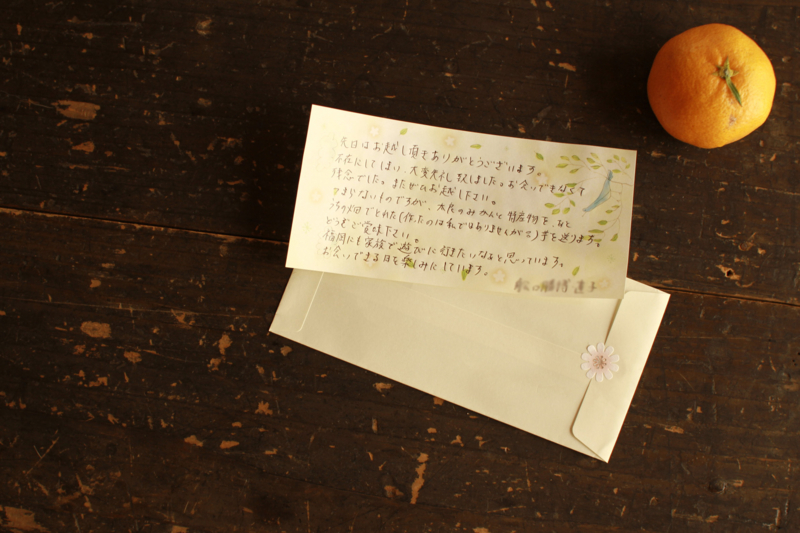 先日はお越し頂きありがとうございます。
不在にしてしまい、大変失礼致しました。お会いできなくて
残念でした。またぜひお越し下さい。
つまらないものですが、大島のみかんと特産物を、あと
うちの畑でとれた(作ったのは私ではありませんが…)芋を送ります。
どうぞご賞味下さい。
福岡にも家族で遊びに行きたいなあと思っています。
お会いできる日を楽しみにしています。